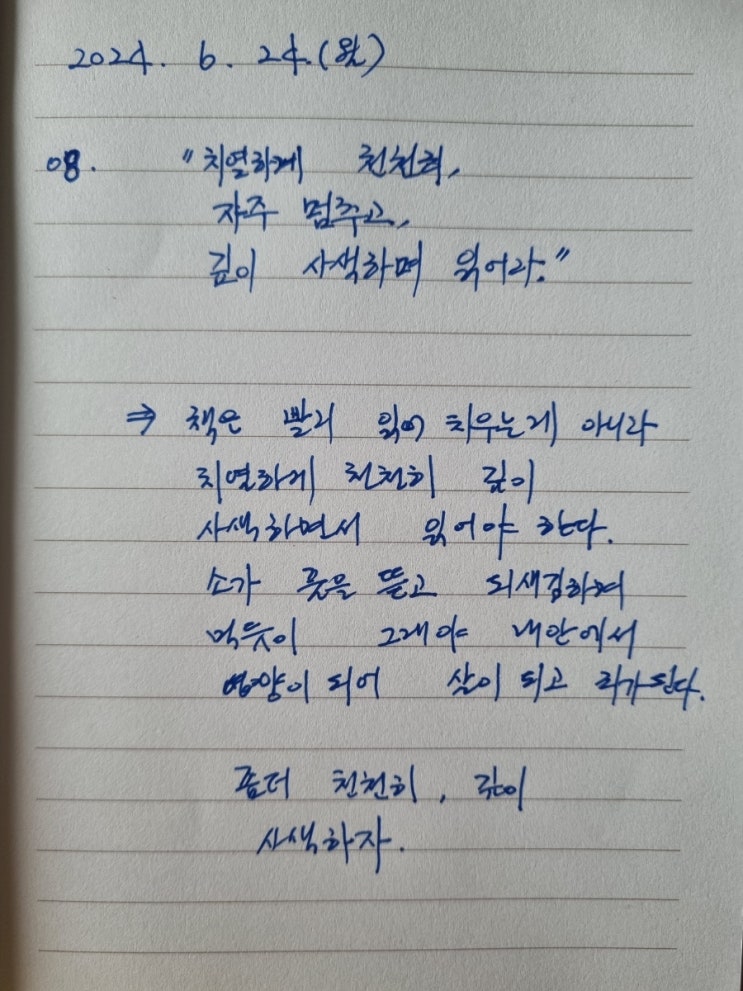 2024. 6. 24.(월)
08. "치열하게 천천히,
자주 멈추고,
깊이 사색하며 읽어라."
⇒ 책은 빨리 읽어 치우는게 아니라
치열하게 천천히 깊이
사색하면서 읽어야 한다.
소가 풋을 뜯고 되새김하며
먹듯이 그래야 내안에서
영양이 되어 살이 되고 피가된다.
좀더 천천히, 깊이
사색하자.